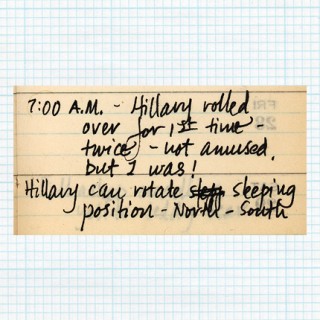 7:00 A.M. - Hillary rolled
over for 1st time
(twice) - not amused,
but I was!
Hillary can rotate sleeping
position - North - South
FRI
28